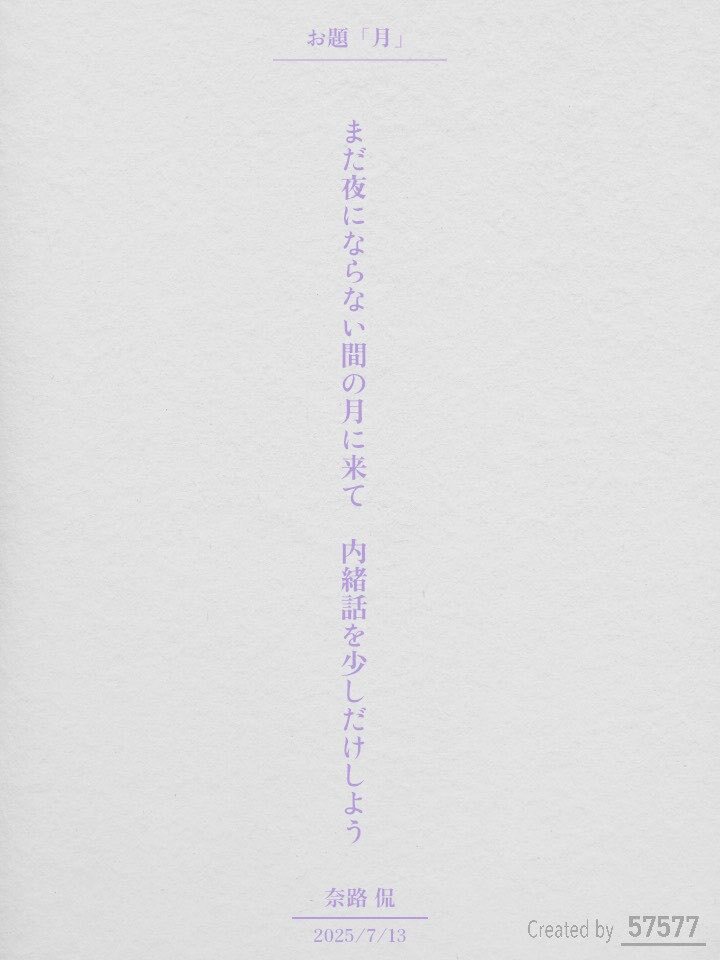 お題「月」
まだ夜にならない間の月に来て　内緒話を少しだけしよう
奈路 侃
2025/7/13
Created by 57577